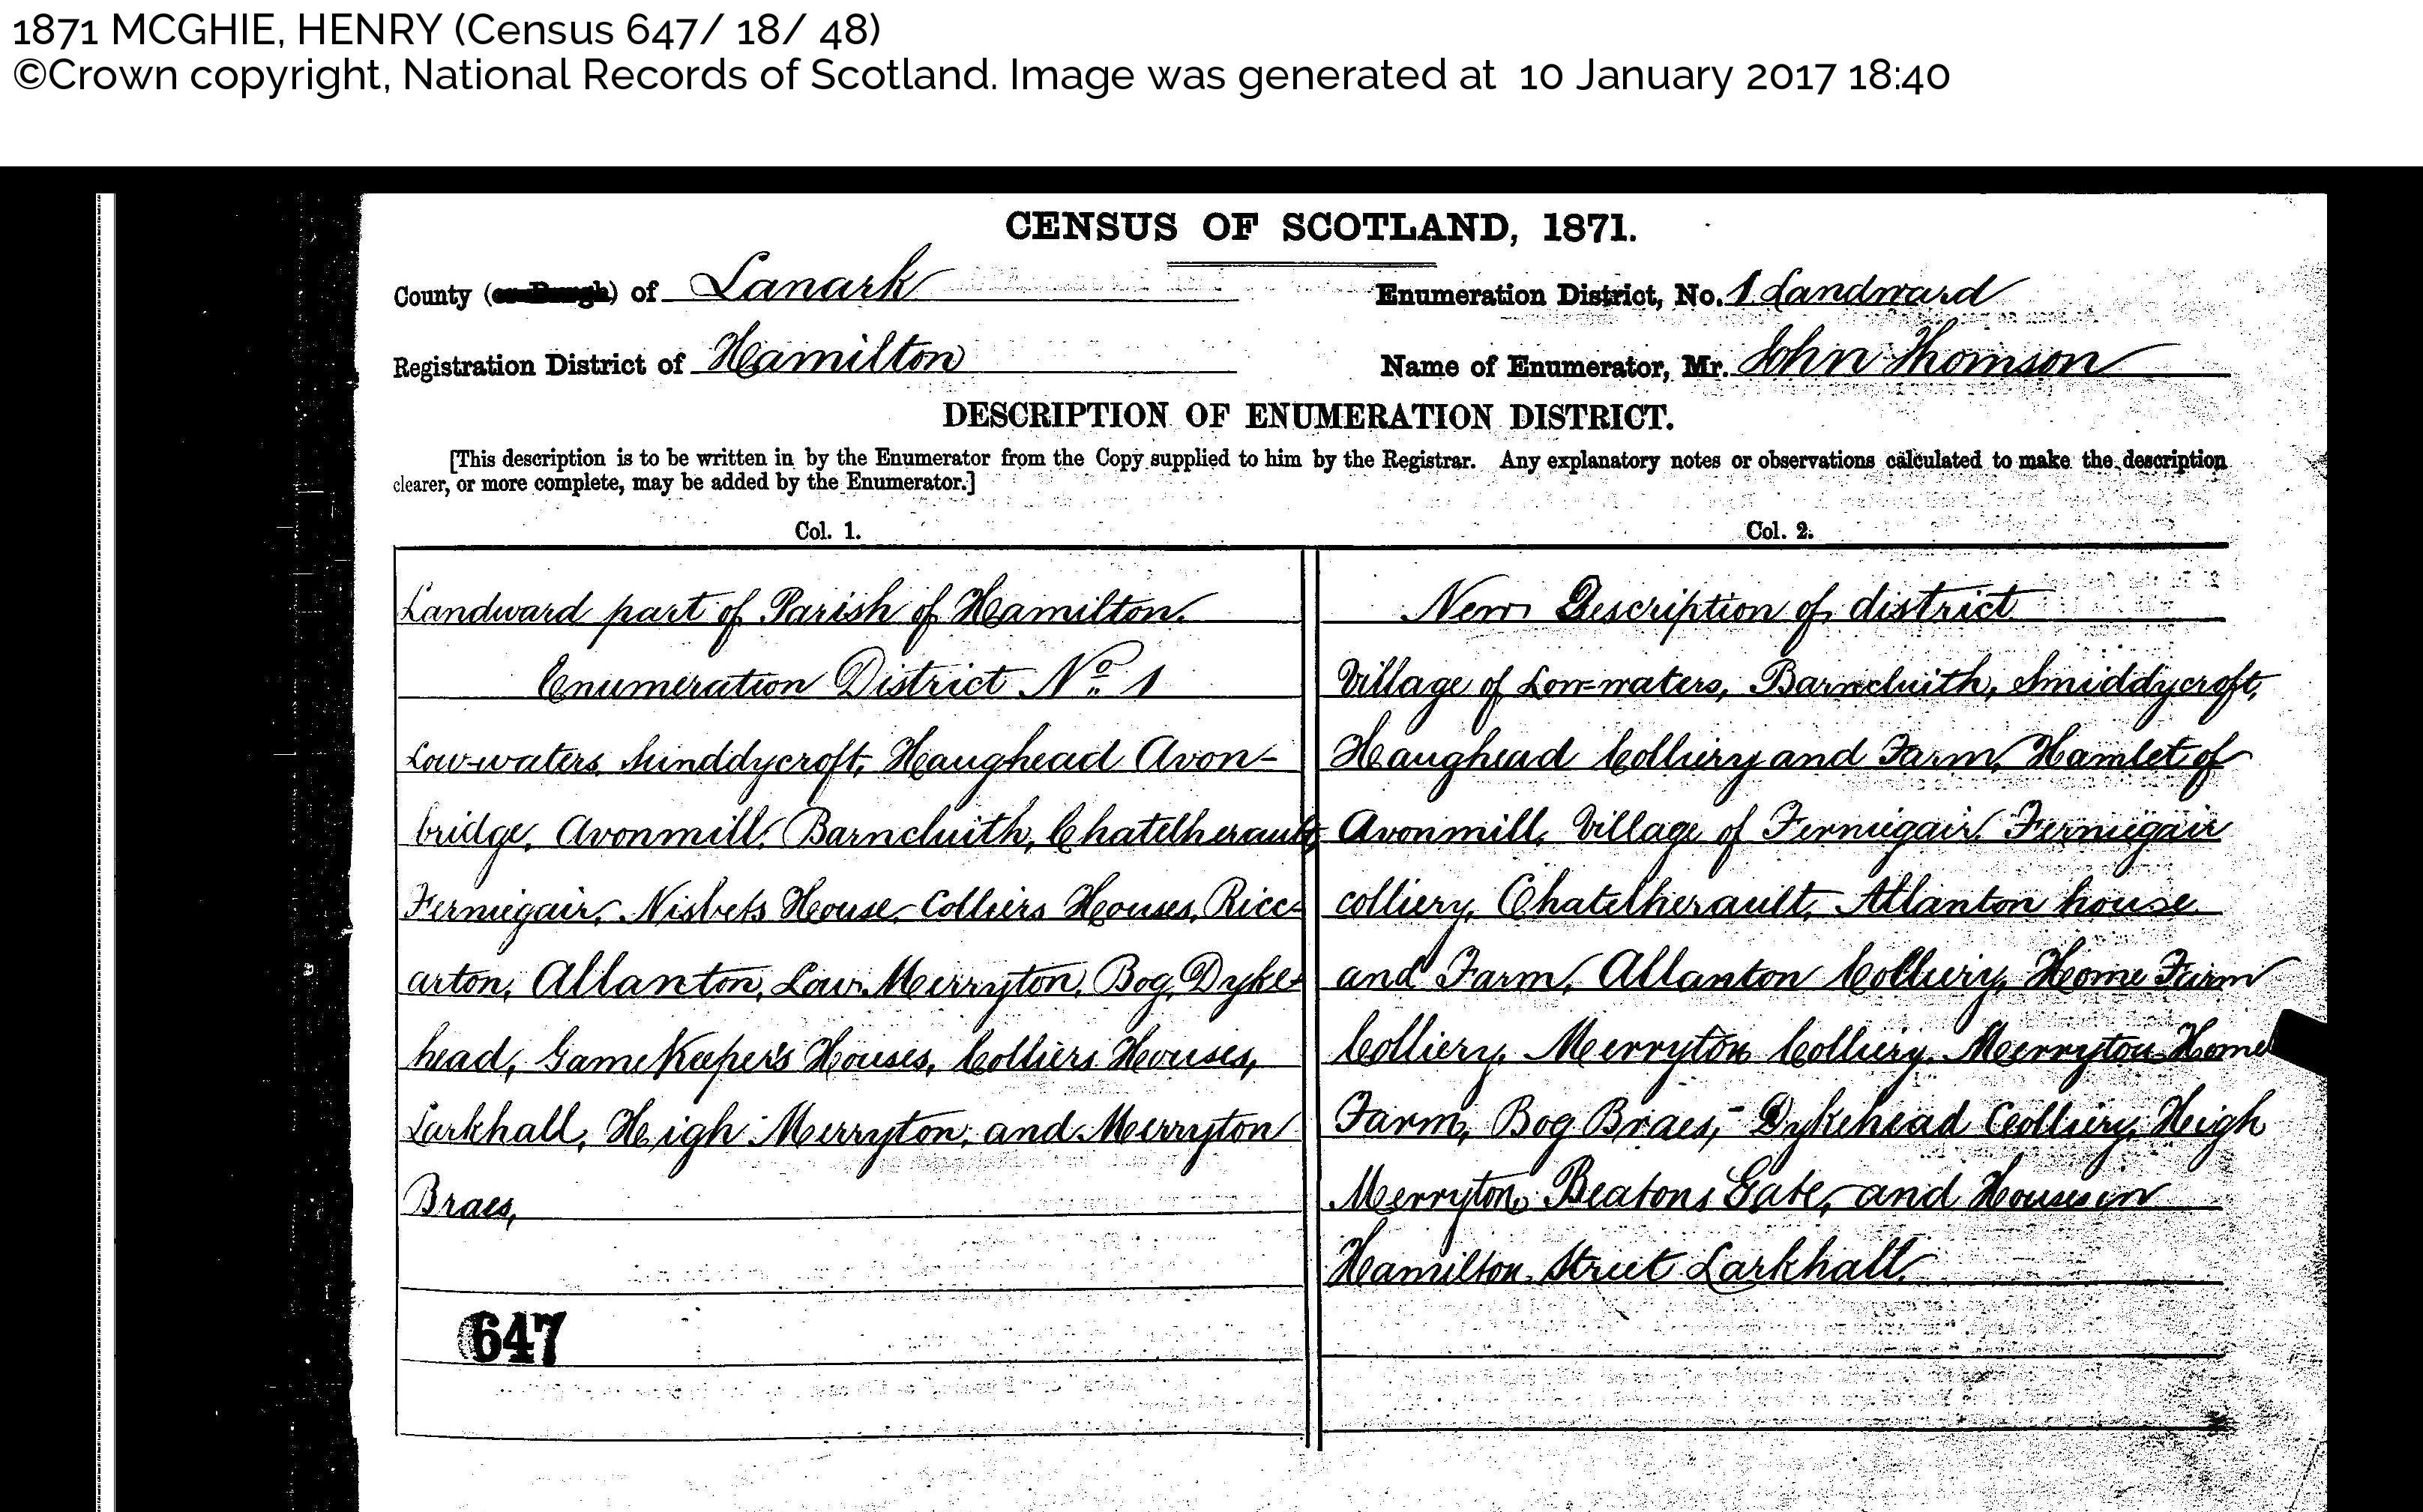 1871 MCGHIE, HENRY (Census 647/ 18/ 48)
©Crown copyright, National Records of Scotland. Image was generated at 10 January 2017 18:40
CENSUS OF SCOTLAND, 1871.
County (or Burgh) of Lanark
Enumeration District, No. 1 Landward
Registration District of Hamilton
Name of Enumerator, Mr. John Thomson
DESCRIPTION OF ENUMERATION DISTRICT.
[This description is to be written in by the Enumerator from the Copy supplied to him by the Registrar. Any explanatory notes or observations calculated to make the description
clearer, or more complete, may be added by the Enumerator.]
Col. 1.
Landward part of Parish of Hamilton.
Enumeration District No. 1
Low-waters, Smiddycroft, Haughead Avon-
bridge, Avonmill, Barncluith, Chatelherault,
Ferniegair, Nisbets House, Colliers Houses, Ricc-
arton, Allanton, Low Merryton, Bog, Dyke-
head, GameKeeper's Houses, Colliers Houses,
Larkhall, Heigh Merryton, and Merryton
Braes,
647
Col. 2.
New Description of district
Village of Low-waters, Barncluith, Smiddycroft,
Haughead Colliery and Farm, Hamlet of
Avonmill, Village of Ferniegair, Ferniegair
colliery, Chatelherault, Allanton house
and Farm, Allanton Colliery, Home Farm
Colliery, Merryton Colliery, Merryton Home
Farm, Bog Braes,- Dykehead Colliery, Heigh
Merryton, Beatons Gate, and Houses in
Hamilton Street Larkhall.